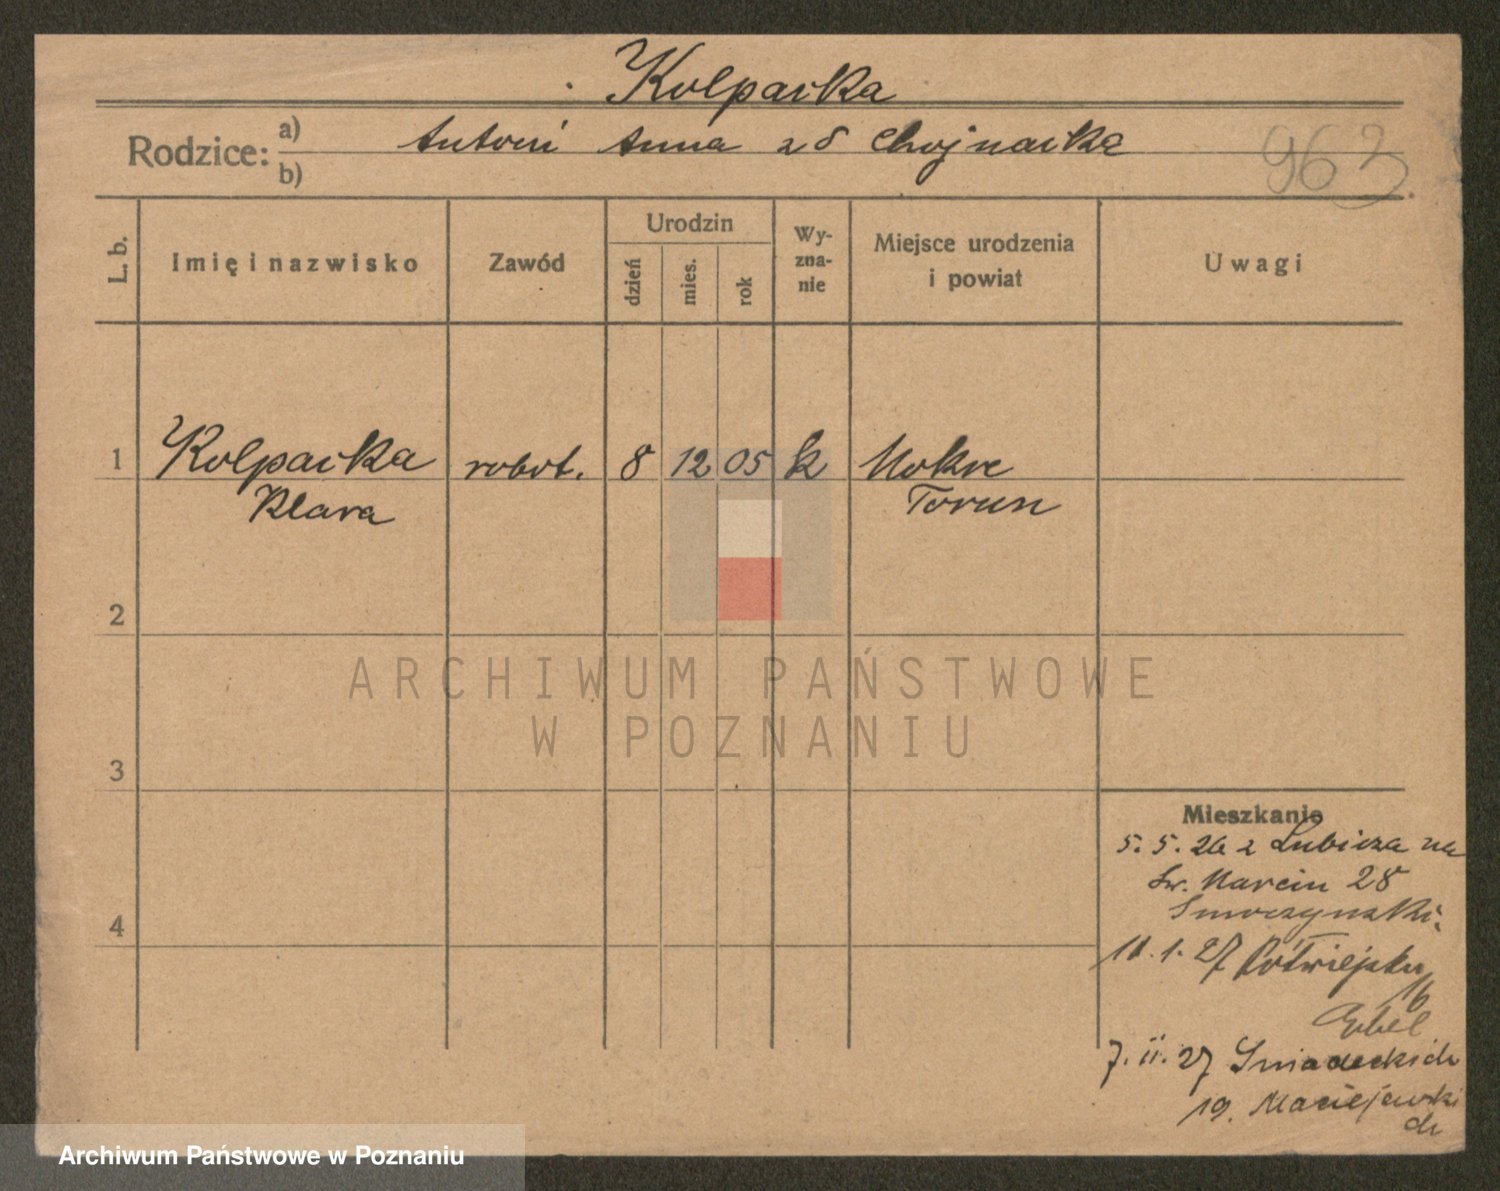 Kolpacka
Rodzice: a) Antoni Anna z d Chojnacka
b)
963
L. b.
Imię i nazwisko
Zawód
Urodzin
dzień
mies.
rok
Wy-
zna-
nie
Miejsce urodzenia
i powiat
Uwagi
1 Kolpacka robot. 8 12 05 k Mokre
Klara Torun
2
ARCHIWUM PAŃSTWOWE
W POZNANIU
3
Mieszkanie
5. 5. 26 z Lubicza na
Św. Marcin 28
Smoczynski
4
11. 1. 27 Półwiejska
16
Erbel
7. II. 27 Sniadeckich
19. Maciejewski
Archiwum Państwowe w Poznaniu